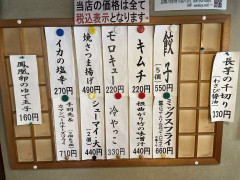 当店の価格は全て
税込表示となります。
長芋の千切り
(わさび醤油)
330円
餃子
(5個)
550円
ミックスフライ
660円
キムチ
220円
根曲がり竹の味噌汁
440円
モロキュー
220円
冷やっこ
330円
焼きつま揚げ
490円
シューマイ・大
440円
イカの塩辛
270円
710円
鳳凰卵のゆで玉子
160円